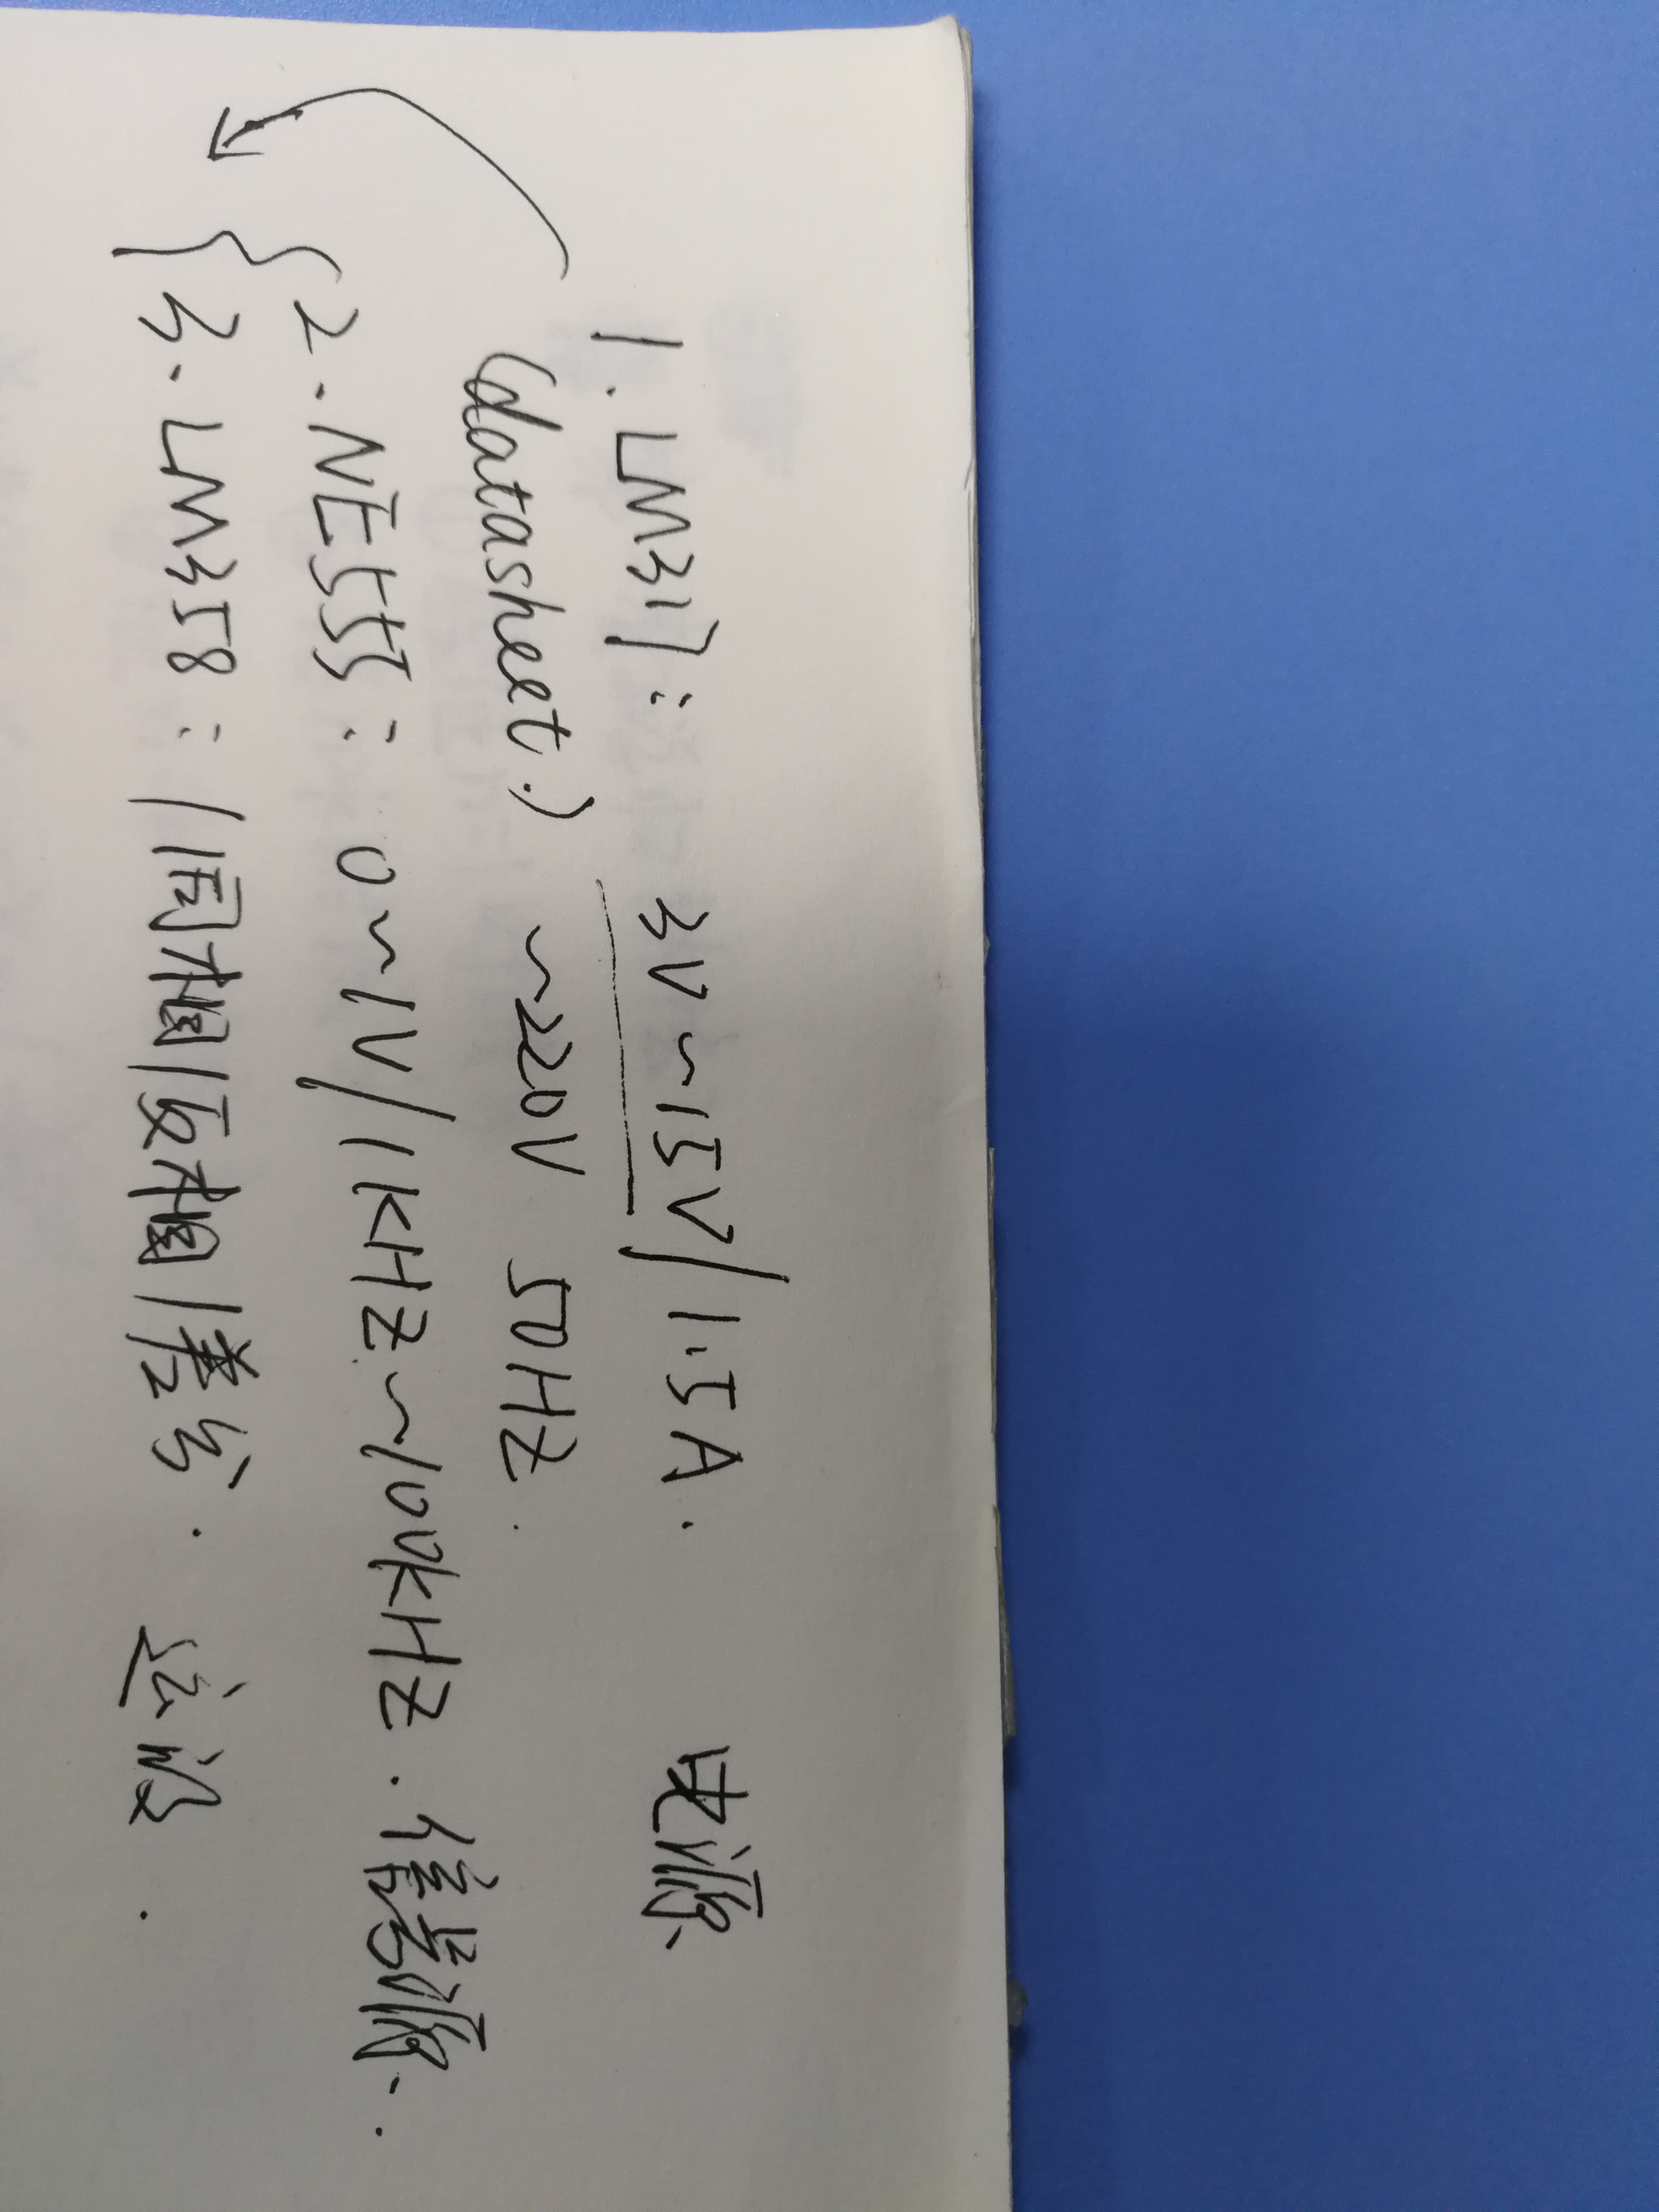 1. LM317: 3V~15V/1.5A. 电源
(datasheet.) ~220V 50HZ.
2. NE555: 0~1V/1KHZ~10KHZ. 信号源.
3. LM358: /同相/反相/差分. 运放.